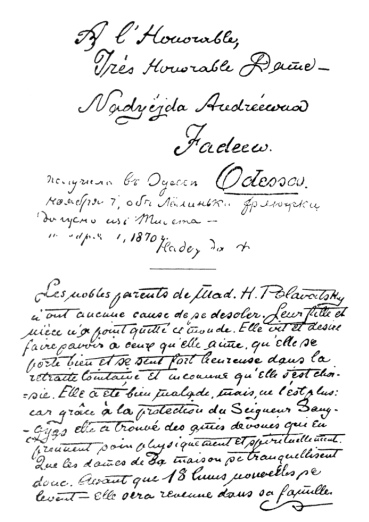 A l'Honorable,
Très Honorable Dame –
Nadyéjda Andréewna
Fadeew.
Odessa.
получила въ Одессѣ
ноября 7, объ Лёлинькѣ
изъ Тибета –
1870 г.
Надежда Ф
Les nobles parents de Mad. H. Blavatsky
n'ont aucune cause de se desoler. Leur fille et
nièce n'a point quitté ce monde. Elle vit et desire
faire savoir à ceux qu'elle aime, qu'elle se
porte bien et se sent fort heureuse dans la
retraite lointaine et inconnue qu'elle s'est choi-
sie. Elle a été bien malade, mais ne l'est plus:
car grâce à la protection du Seigneur Sang-
gyas elle a trouvé des amis devoués qui en
prennent soin physiquement et spirituellement.
Que les dames de sa maison se tranquillisent
donc. Avant que 18 lunes nouvelles se
levent – elle sera revenue dans sa famille.